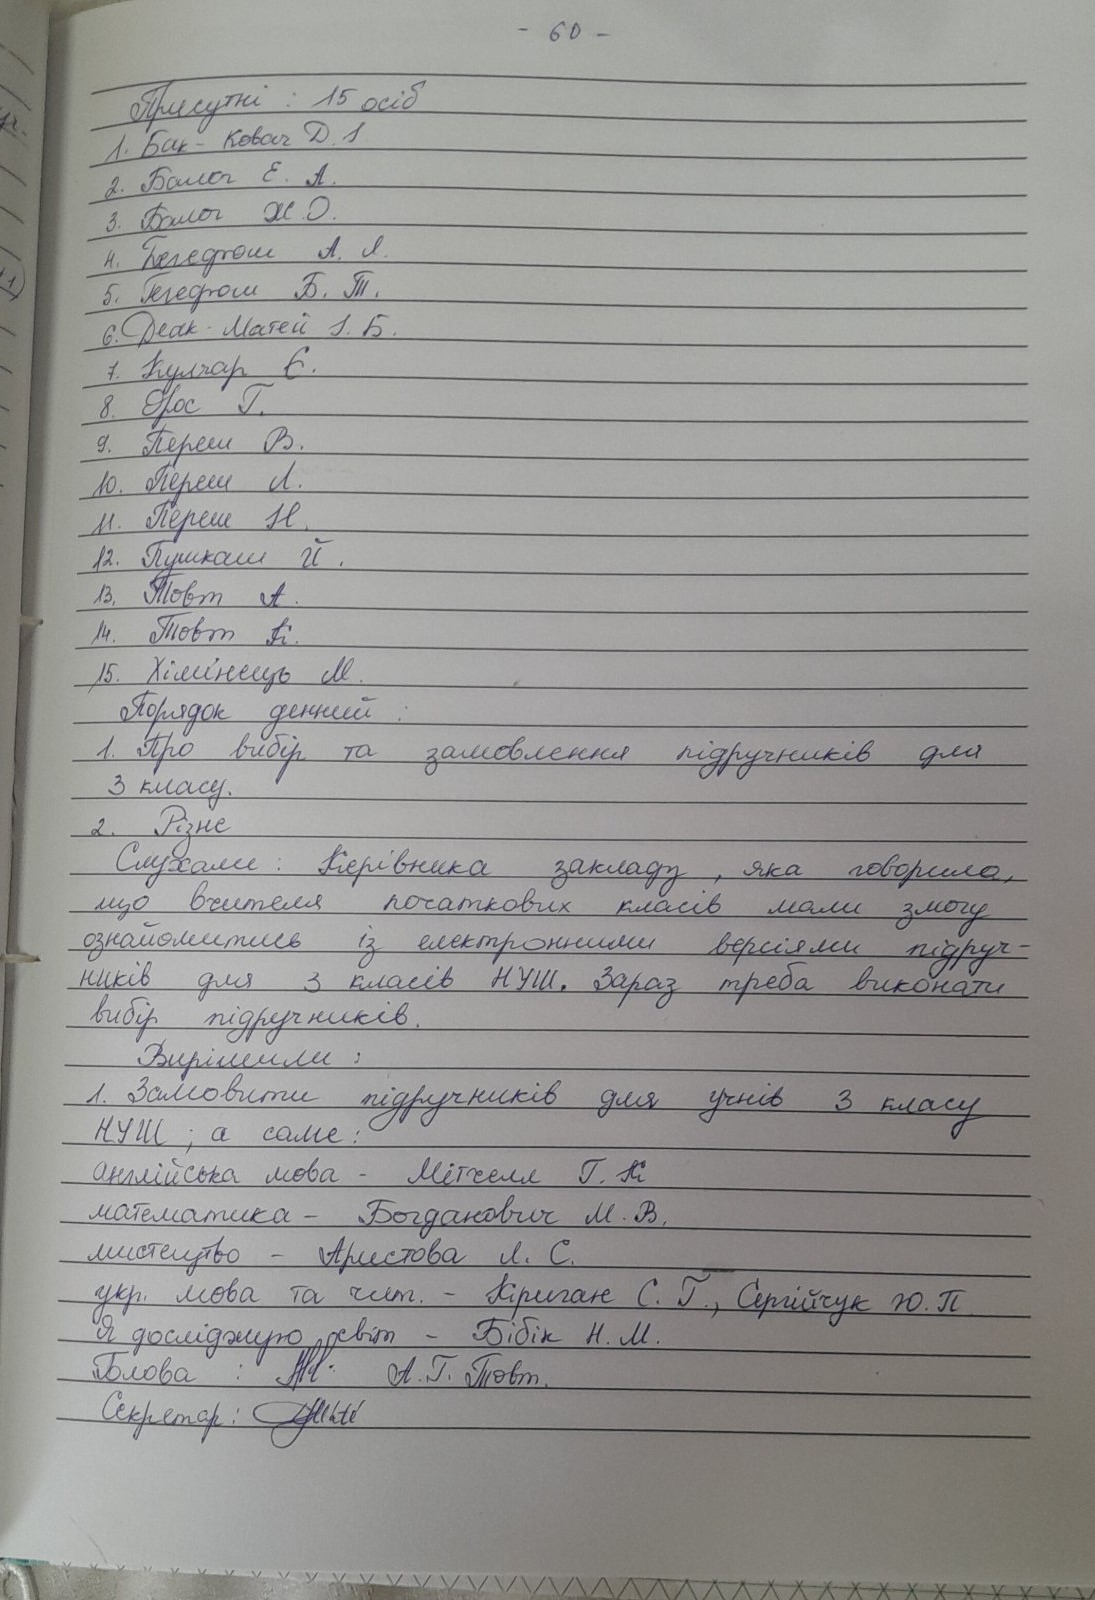 - 60 -
Присутні : 15 осіб
1. Бак - Ковач Д. І
2. Балог Е. А.
3. Балог Ж. О.
4. Гегедюш А. Л.
5. Гегедюш Б. Т.
6. Деак - Матей І. Б.
7. Кулчар Є.
8. Орос Г.
9. Переш В.
10. Переш Л.
11. Переш Н.
12. Пушкаш Й.
13. Товт А.
14. Товт К.
15. Хімінець М.
Порядок денний :
1. Про вибір та замовлення підручників для
3 класу.
2. Різне
Слухали : Керівника закладу, яка говорила,
що вчителя початкових класів мали змогу
ознайомитись із електронними версіями підруч-
ників для 3 класів НУШ. Зараз треба виконати
вибір підручників.
Вирішили :
1. Замовити підручників для учнів 3 класу
НУШ ; а саме :
англійська мова - Мітчелл Г. К
математика - Богданович М. В.
мистецтво - Аристова Л. С.
укр. мова та чит. - Кіриган С. Г., Сергійчук Ю. П
Я досліджую світ - Бібік Н. М.
Голова : А. Г. Товт.
Секретар :